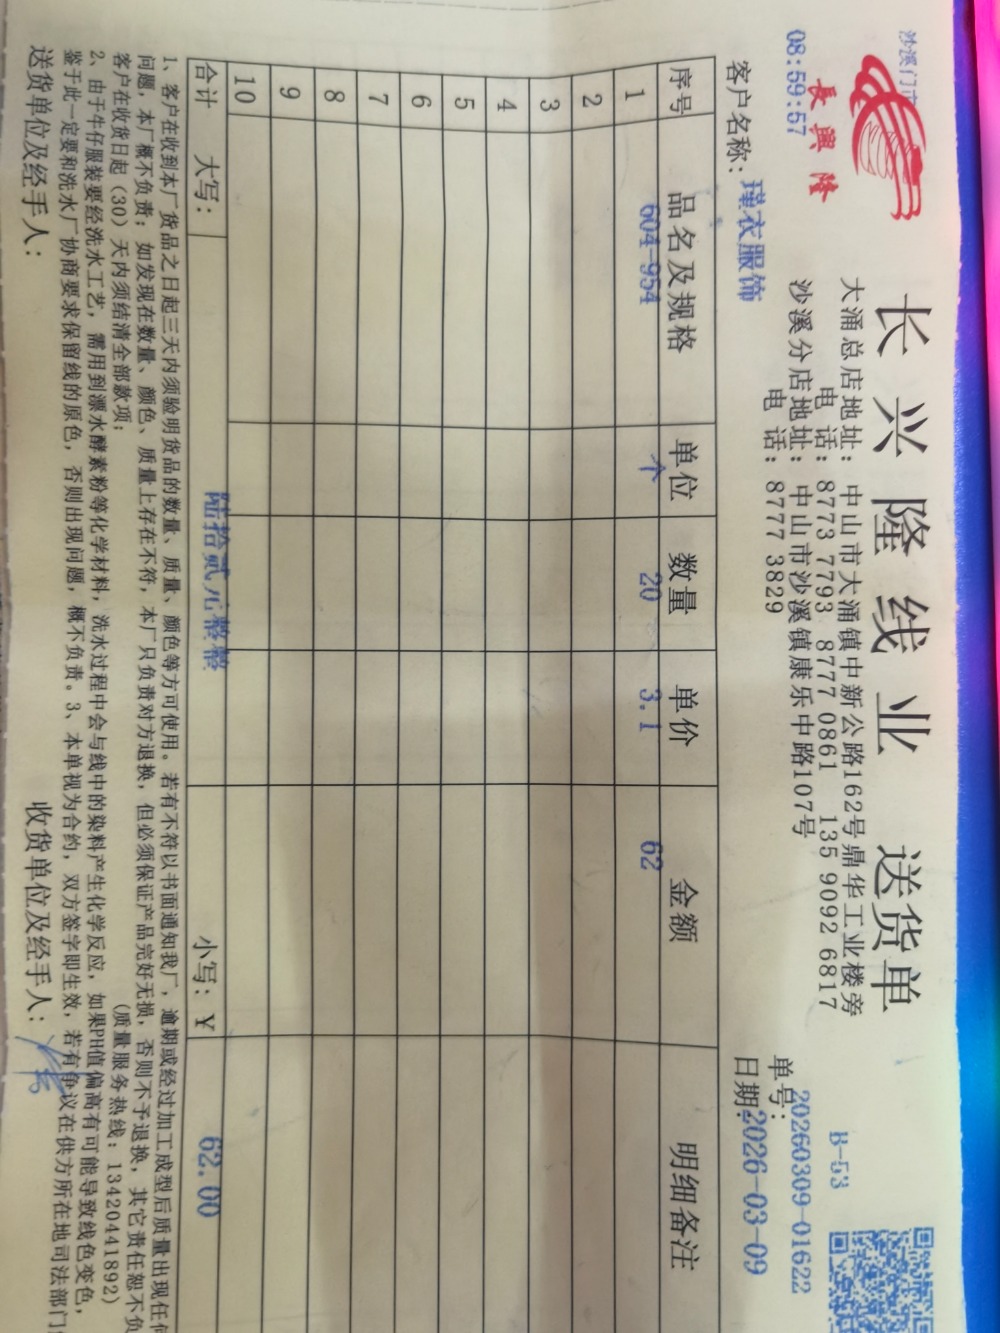 沙溪门市
08:59:57
長興隆
长兴隆线业 送货单
B-53
大涌总店地址: 中山市大涌镇中新公路162号鼎华工业楼旁
电 话: 8773 7793 8777 0861 135 9092 6817
沙溪分店地址: 中山市沙溪镇康乐中路107号
电 话: 8777 3829
单号: 20260309-01622
客户名称: 瑾衣服饰
日期: 2026-03-09
序号 品名及规格 单位 数量 单价 金额 明细备注
1 604-954 个 20 3.1 62
2
3
4
5
6
7
8
9
10
合计 大写: 陆拾贰元整整 小写: ¥ 62.00
1、客户在收到本厂货品之日起三天内须验明货品的数量、质量、颜色等方可使用。若有不符以书面通知我厂，逾期或经过加工成型后质量出现任何
问题，本厂概不负责；如发现在数量、颜色、质量上存在不符，本厂只负责对方退换，但必须保证产品完好无损，否则不予退换，其它责任恕不负
客户在收货日起（30）天内须结清全部款项； (质量服务热线: 13420441892)
2、由于牛仔服装要经洗水工艺，需用到漂水酵素粉等化学材料，洗水过程中会与线中的染料产生化学反应，如果PH值偏高有可能导致线色变色，
鉴于此一定要和洗水厂协商要求保留线的原色，否则出现问题，概不负责。3、本单视为合约，双方签字即生效，若有争议在供方所在地司法部门
送货单位及经手人: 收货单位及经手人: